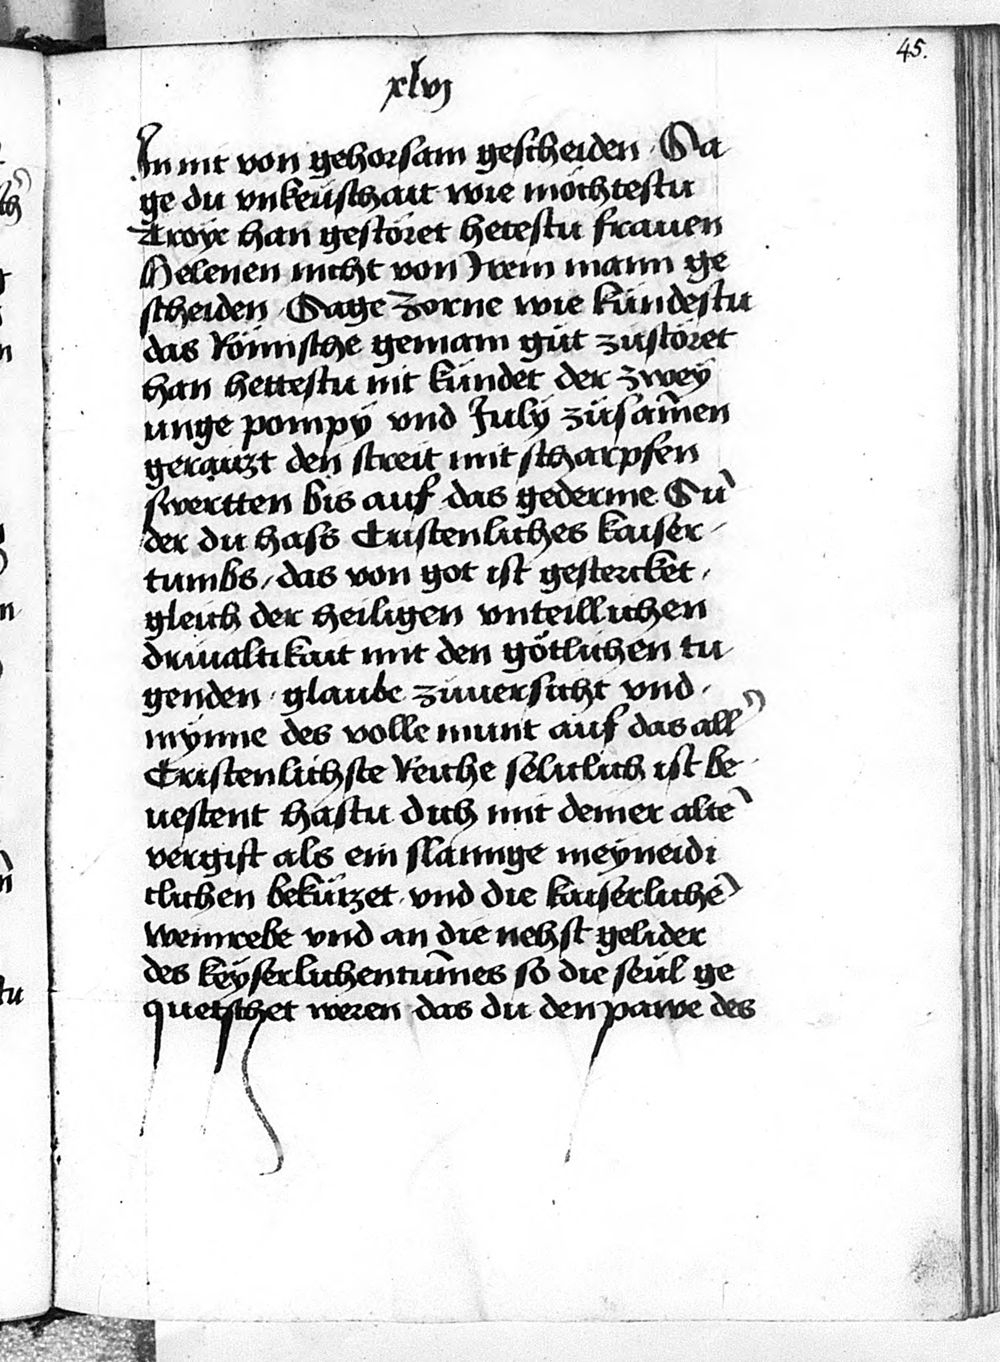 45.
xlvj
In nit von gehorsam gescheiden Sa
ge du vnkeüschait wie möchtestu
Troye han gestöret hetestu frauen
Helenen nicht von Jrem mann ge
scheiden Sage Zorne wie kündestu
das Römische gemain güt züstöret
han hettestu nit kündet der zwey
unge pompÿ vnd Julÿ züsam̄en
gerauzt den streit mit scharpfen
swertten bis auf das gederme Su᷒
der du hass Cristenliches kaiser
tumbs / das von got ist gestercket /
gleich der heiligen vnteillichen
driualtikait mit den götlichen tu
genden · glaube züuersicht vnd
mÿnne des volle munt auf das all᷒
Cristenlichste Reiche sëliclich ist be
uestent hastu dich mit deiner alte᷒
vergift als ein slannge meÿneidi
clichen bekürzet · vnd die kaiserliche᷒
weinrebe vnd an die nehst gelider
des keÿserlichentum̄es so die seül ge
quetschet weren das du den pawe des